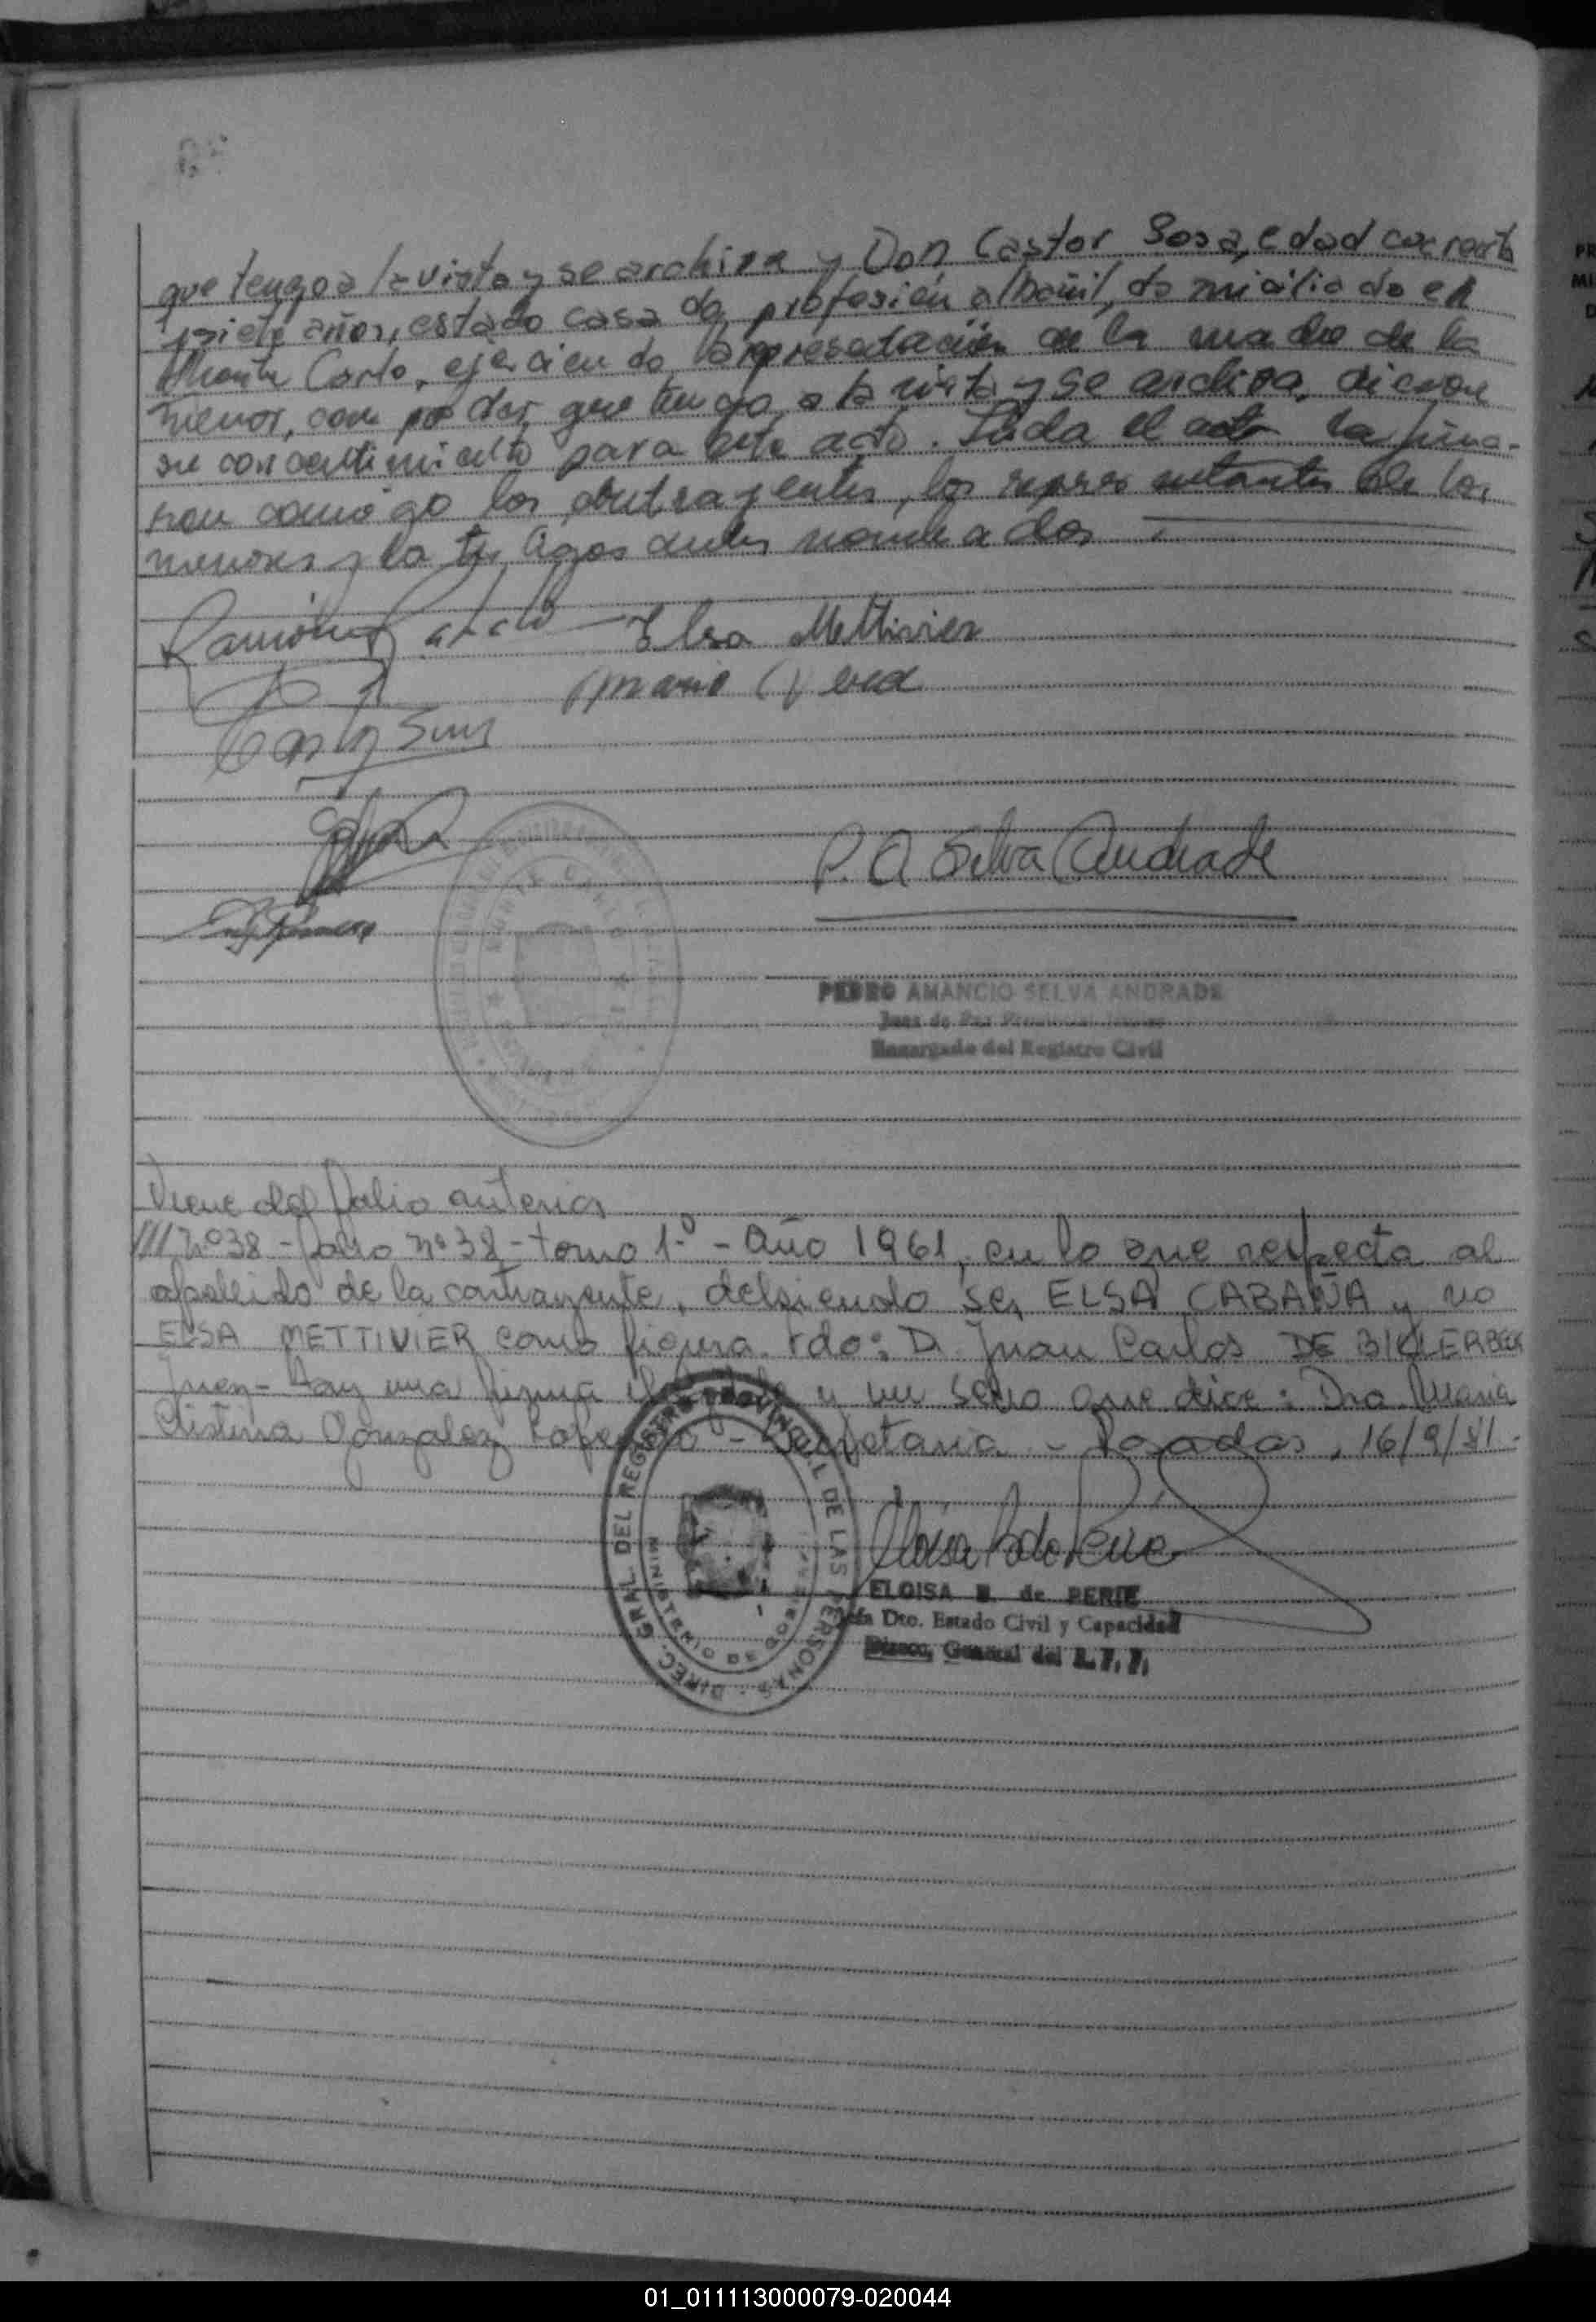 que tengo a la vista y se archiva y Don Castor Sosa, edad cuarenta
y siete años, estado casado, profesión albañil, domiciliado en
Monte Carlo, ejerciendo la representación de la madre de la
menor, con poder que tengo a la vista y se archiva, dieron
su consentimiento para este acto. Leída el acta la firma-
ron conmigo los contrayentes, los representantes de los
menores y los testigos antes nombrados
Elsa Mettivier
P. A Selva Andrade
PEDRO AMANCIO SELVA ANDRADE
Juez de Paz
Encargado del Registro Civil
Viene del folio anterior
/// nº 38 - folio nº 38 - tomo 1º - Año 1961, en lo que respecta al
apellido de la contrayente, debiendo ser ELSA CABAÑA y no
ELSA METTIVIER como figura. Fdo: D. Juan Carlos DE
Juez - Hay una firma y un sello que dice: Dra Maria
Cristina Gonzalez - Secretaria - Posadas, 16/9/81.
DIREC. GRAL. DEL REGISTRO PROVINCIAL DE LAS PERSONAS
MINISTERIO DE GOBIERNO
ELOISA B. de PERIE
Jefa Dto. Estado Civil y Capacidad
Direcc. General del R. P. P.
01_011113000079-020044